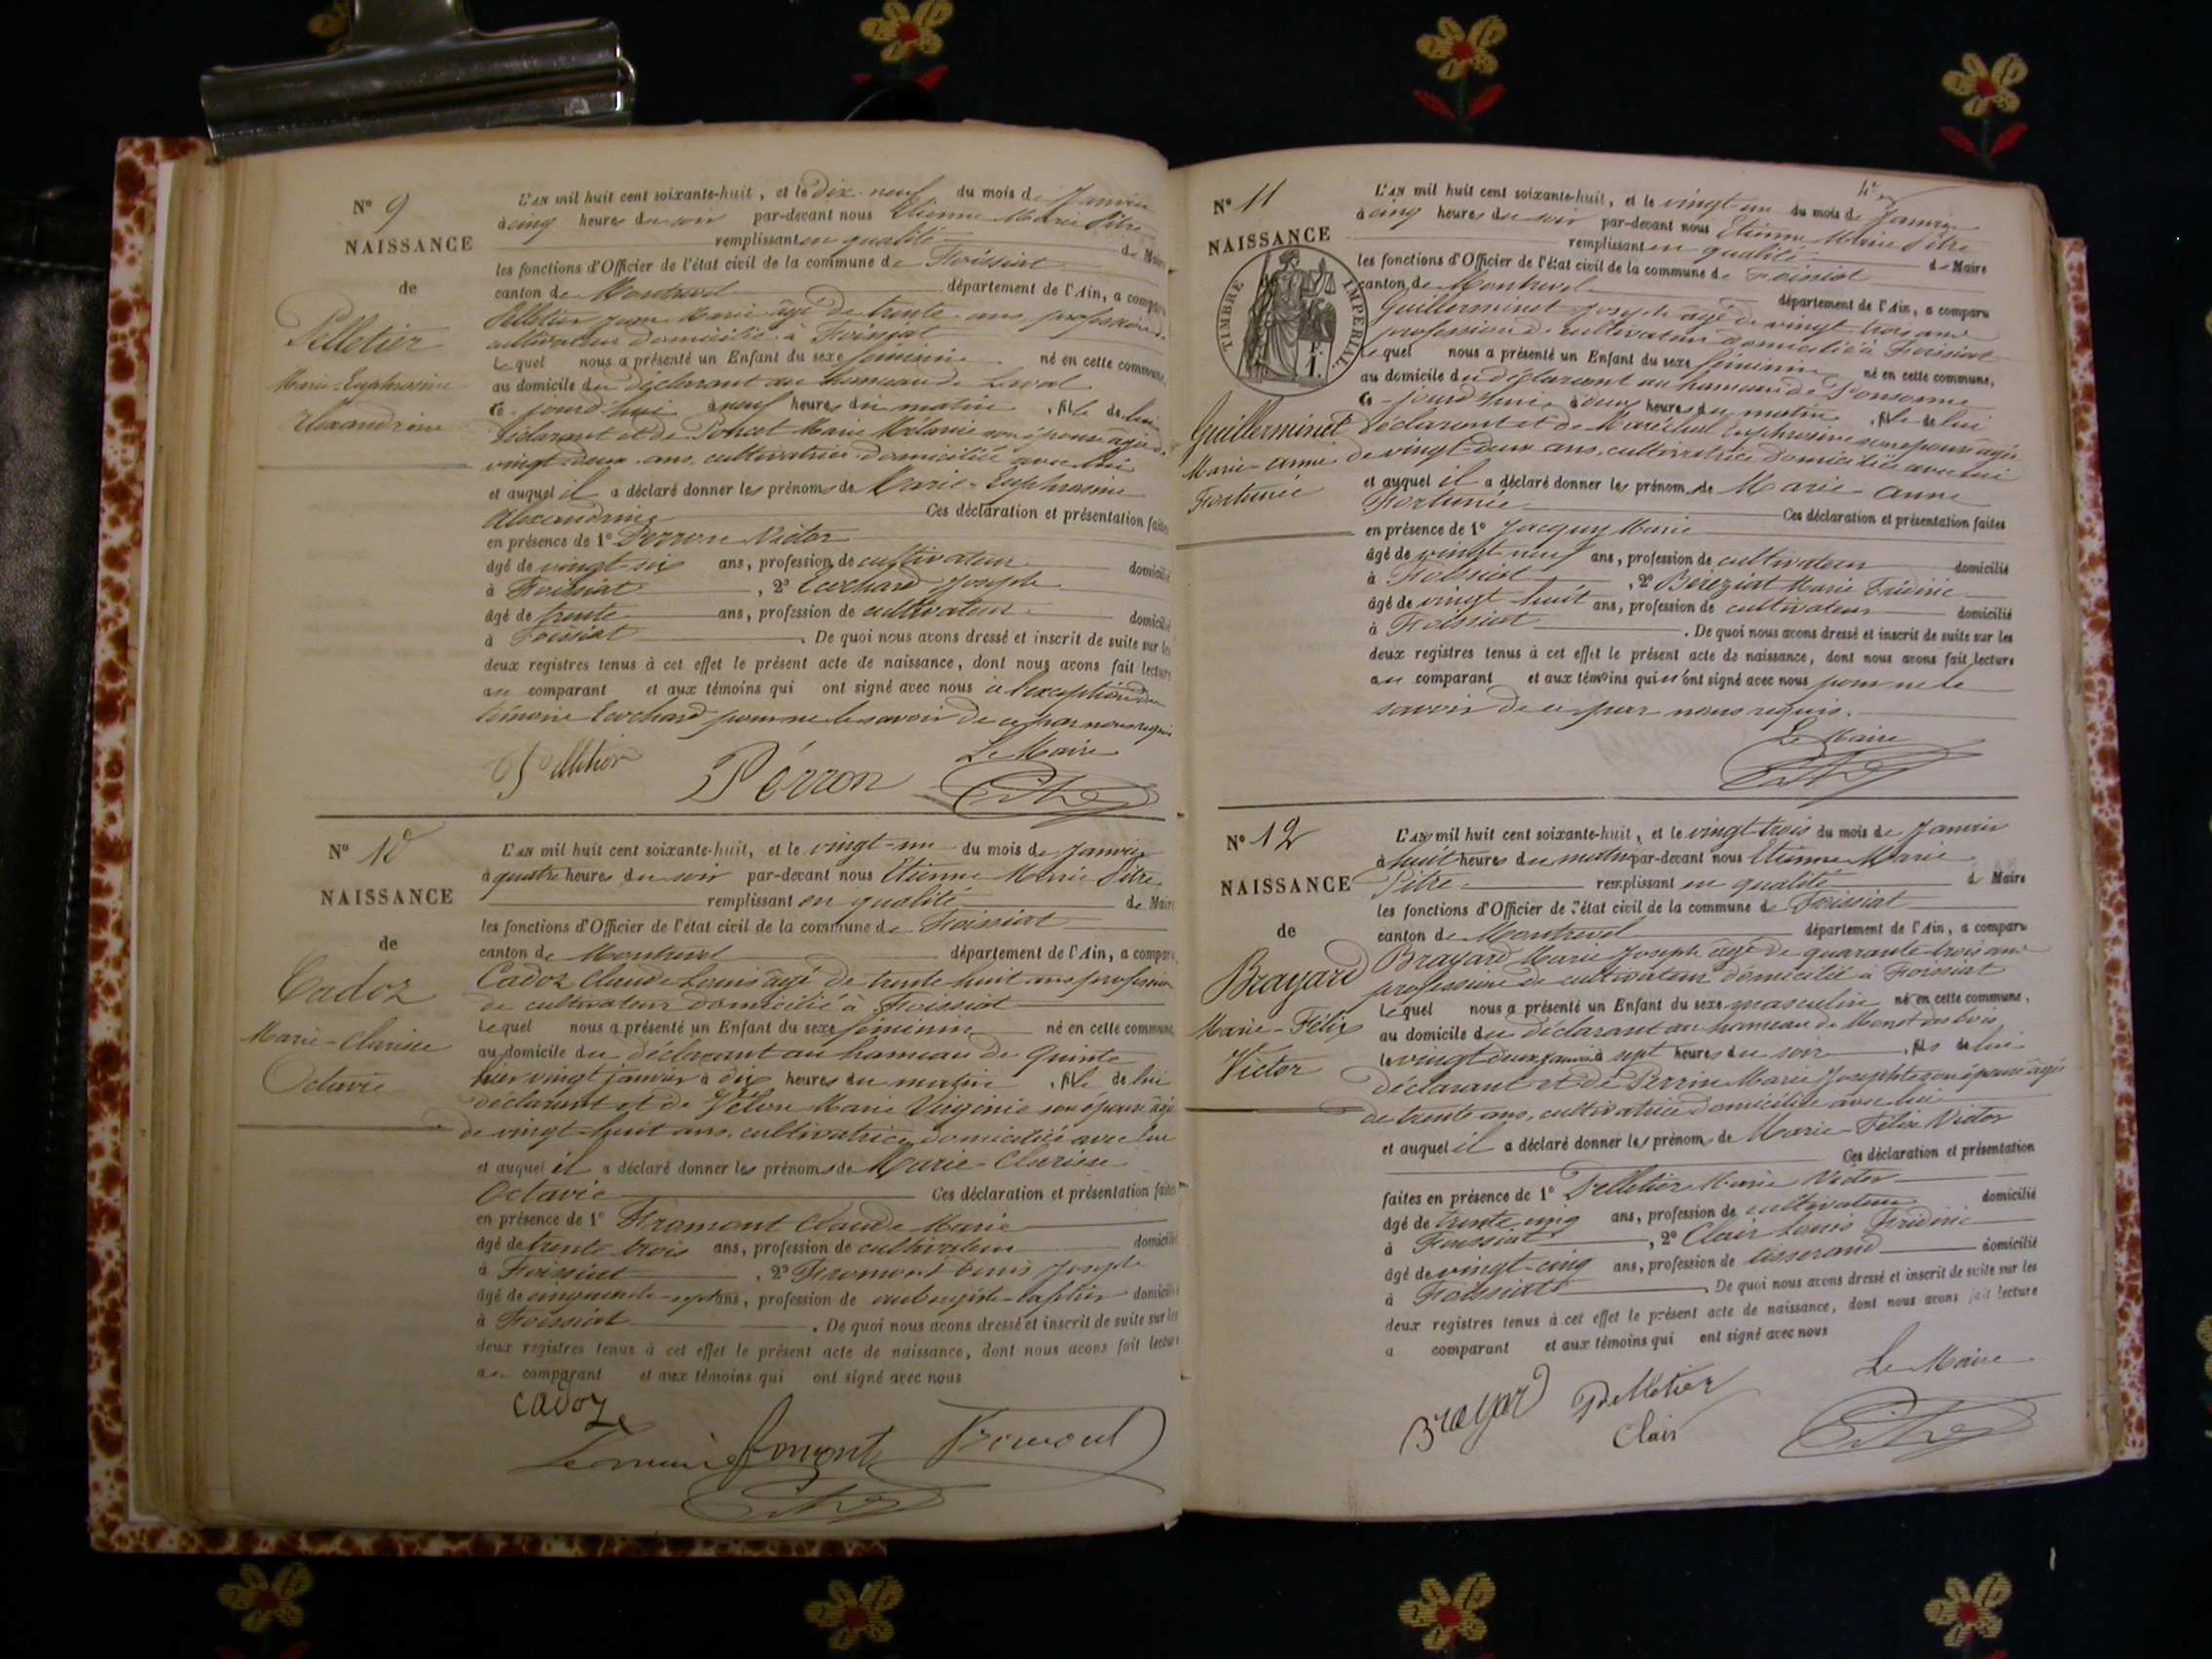 N° 9
NAISSANCE
de
Pelletier
Marie-Euphrosine
Alexandrine
L'AN mil huit cent soixante-huit, et le Dix-neuf du mois de Janvier
à cinq heures du soir par-devant nous Etienne Marie Pitre
remplissant en qualité de Maire
les fonctions d'Officier de l'état civil de la commune de Foissiat
canton de Montrevel département de l'Ain, a comparu
Pelletier Jean Marie âgé de trente ans, profession de
cultivateur domicilié à Foissiat
Lequel nous a présenté un Enfant du sexe féminin né en cette commune,
au domicile du déclarant au hameau de
ce-jourd'hui à neuf heures du matin, fille de lui
déclarant et de Poncet Marie Mélanie son épouse âgée de
vingt deux ans, cultivatrice domiciliée avec lui
et auquel il a déclaré donner les prénoms de Marie-Euphrosine
Alexandrine Ces déclaration et présentation faites
en présence de 1° Perron Victor
âgé de vingt six ans, profession de cultivateur domicilié
à Foissiat, 2° Ecochard Joseph
âgé de trente ans, profession de cultivateur domicilié
à Foissiat. De quoi nous avons dressé et inscrit de suite sur les
deux registres tenus à cet effet le présent acte de naissance, dont nous avons fait lecture
au comparant et aux témoins qui ont signé avec nous à l'exception du
témoin Ecochard pour ne le savoir de ce par nous requis
Le Maire
Pelletier Perron Pitre
N° 10
NAISSANCE
de
Cadoz
Marie-Clarisse
Octavie
L'AN mil huit cent soixante-huit, et le vingt-un du mois de Janvier
à quatre heures du soir par-devant nous Etienne Marie Pitre
remplissant en qualité de Maire
les fonctions d'Officier de l'état civil de la commune de Foissiat
canton de Montrevel département de l'Ain, a comparu
Cadoz Claude Louis âgé de trente huit ans profession
de cultivateur domicilié à Foissiat
Lequel nous a présenté un Enfant du sexe féminin né en cette commune,
au domicile du déclarant au hameau de Quinte
hier vingt janvier à dix heures du matin, fille de lui
déclarant et de Velon Marie Virginie son épouse âgée
de vingt-huit ans, cultivatrice domiciliée avec lui
et auquel il a déclaré donner les prénoms de Marie-Clarisse
Octavie Ces déclaration et présentation faites
en présence de 1° Fromont Claude Marie
âgé de trente trois ans, profession de cultivateur domicilié
à Foissiat, 2° Fromont Denis Joseph
âgé de cinquante-sept ans, profession de aubergiste domicilié
à Foissiat. De quoi nous avons dressé et inscrit de suite sur les
deux registres tenus à cet effet le présent acte de naissance, dont nous avons fait lecture
au comparant et aux témoins qui ont signé avec nous
Cadoz
Le maire fromont Fromont
Pitre
4e
N° 11
NAISSANCE
TIMBRE IMPÉRIAL
Guillerminet
Marie-Anne
Fortunée
L'AN mil huit cent soixante-huit, et le vingt un du mois de Janvier
à cinq heures du soir par-devant nous Etienne Marie Pitre
remplissant en qualité de Maire
les fonctions d'Officier de l'état civil de la commune de Foissiat
canton de Montrevel département de l'Ain, a comparu
Guillerminet Joseph âgé de vingt trois ans
profession de cultivateur domicilié à Foissiat
Lequel nous a présenté un Enfant du sexe féminin né en cette commune,
au domicile du déclarant au hameau de
ce-jourd'hui, à deux heures du matin, fille de lui
déclarant et de Maréchal Euphrosine son épouse âgée
de vingt-deux ans, cultivatrice domiciliée avec lui
et auquel il a déclaré donner les prénoms de Marie-Anne
Fortunée Ces déclaration et présentation faites
en présence de 1° Jacquy Marie
âgé de vingt neuf ans, profession de cultivateur domicilié
à Foissiat, 2° Béréziat Marie Frédéric
âgé de vingt huit ans, profession de cultivateur domicilié
à Foissiat. De quoi nous avons dressé et inscrit de suite sur les
deux registres tenus à cet effet le présent acte de naissance, dont nous avons fait lecture
au comparant et aux témoins qui n'ont signé avec nous pour ne le
savoir de ce par nous requis.
Le Maire
Pitre
N° 12
NAISSANCE
de
Brayard
Marie-Félix
Victor
L'AN mil huit cent soixante-huit, et le vingt-trois du mois de Janvier
à huit heures du matin par-devant nous Etienne Marie
Pitre remplissant en qualité de Maire
les fonctions d'Officier de l'état civil de la commune de Foissiat
canton de Montrevel département de l'Ain, a comparu
Brayard Marie Joseph âgé de quarante trois ans
profession de cultivateur domicilié à Foissiat
Lequel nous a présenté un Enfant du sexe masculin né en cette commune,
au domicile du déclarant au hameau de
le vingt deux janvier à sept heures du soir, fils de lui
déclarant et de Perrin Marie Josephte son épouse âgée
de trente ans, cultivatrice domiciliée avec lui
et auquel il a déclaré donner les prénoms de Marie-Félix Victor
Ces déclaration et présentation
faites en présence de 1° Pelletier Marie Victor
âgé de trente-cinq ans, profession de cultivateur domicilié
à Foissiat, 2° Clair Louis Frédéric
âgé de vingt-cinq ans, profession de tisserand domicilié
à Foissiat. De quoi nous avons dressé et inscrit de suite sur les
deux registres tenus à cet effet le présent acte de naissance, dont nous avons fait lecture
a comparant et aux témoins qui ont signé avec nous
Le Maire
Brayard Pelletier
Clair Pitre